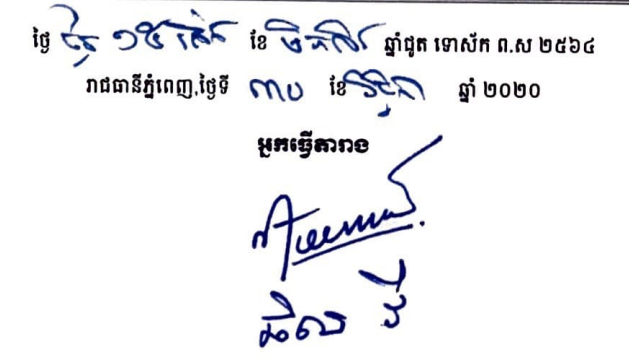 ថ្ងៃ ១៥ កើត ខែ មិគសិរ ឆ្នាំជូត ទោស័ក ព.ស ២៥៦៤
រាជធានីភ្នំពេញ,ថ្ងៃទី ៣០ ខែ វិច្ឆិកា ឆ្នាំ ២០២០
អ្នកធ្វើតារាង